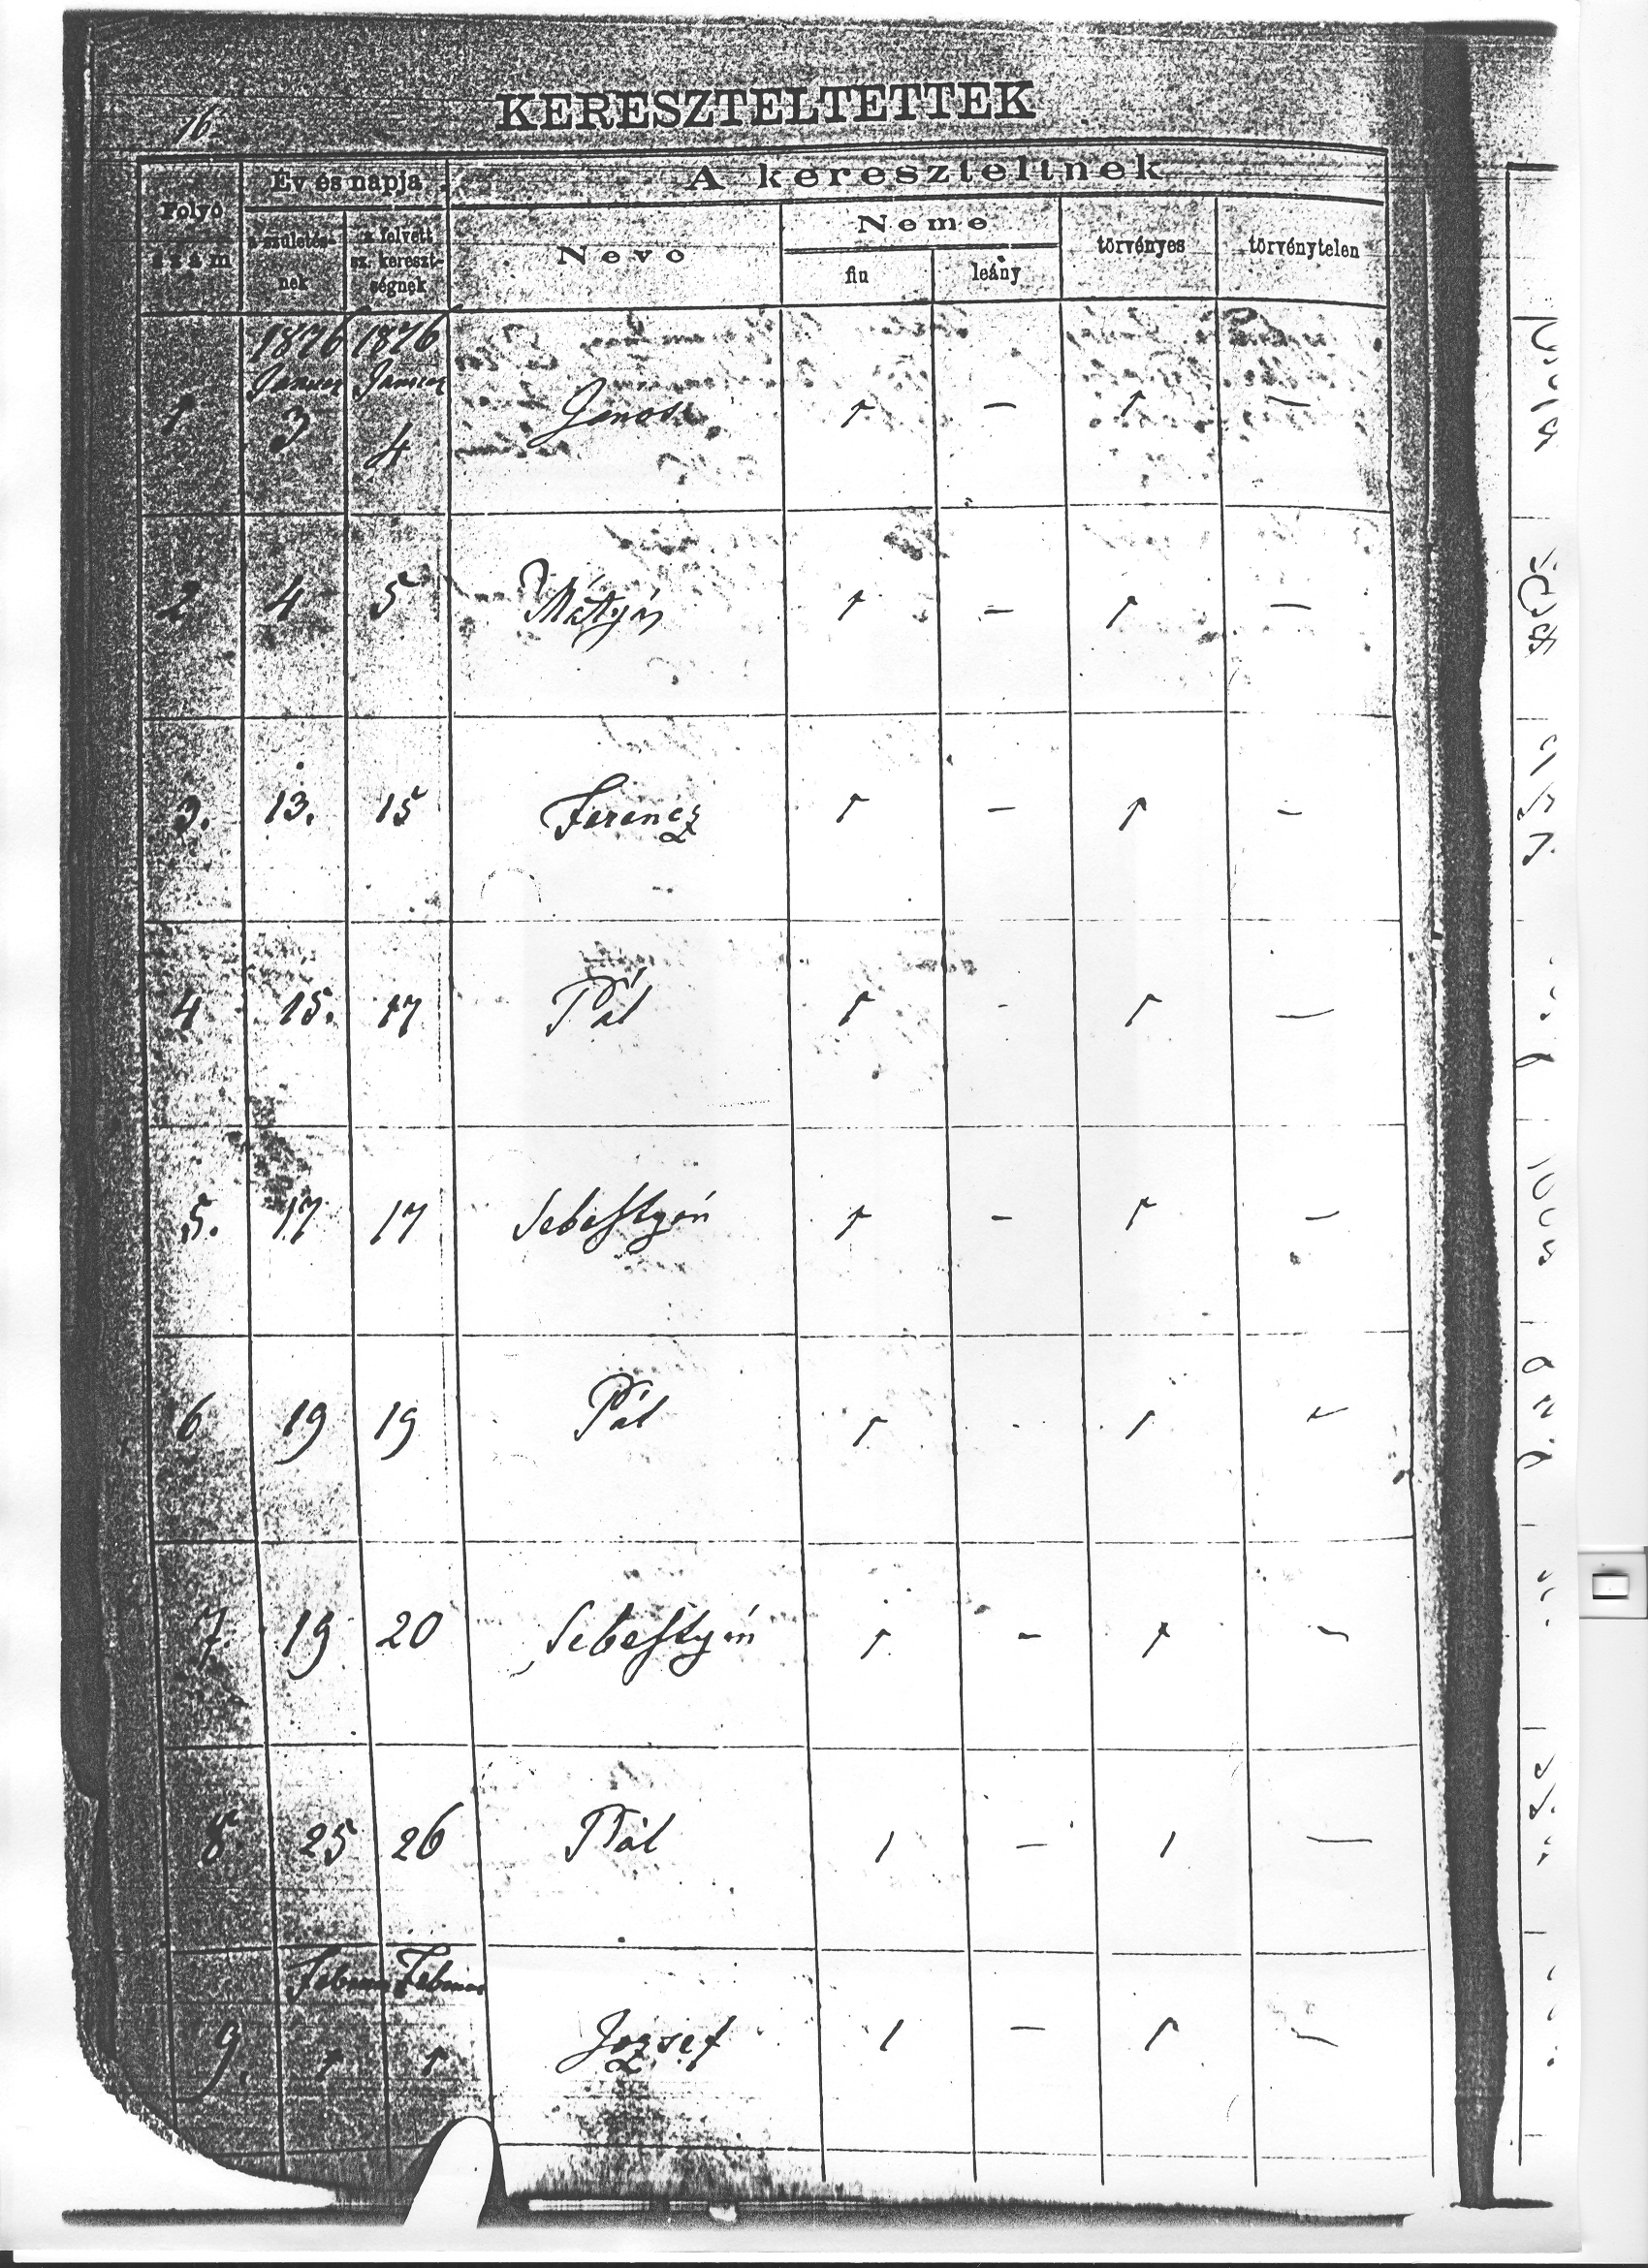 16.
KERESZTELTETTEK
Folyó szám
Év és napja
a születés-
nek
a felvett
sz. kereszt-
ségnek
A kereszteltnek
Neve
Neme
fiu
leány
törvényes
törvénytelen
1876 1876
Januar Januar
1 3 4 János 1 — 1 —
2 4 5 Mátyás 1 — 1 —
3. 13. 15 Ferencz 1 — 1 —
4 15. 17 Pál 1 - 1 —
5. 17 17 Sebestyén 1 — 1 —
6 19 19 Pál 1 - 1 —
7. 19 20 Sebestyén 1 — 1 —
8. 25 26 Pál 1 — 1 —
Februar Februar
9. 1 1 József 1 — 1 —